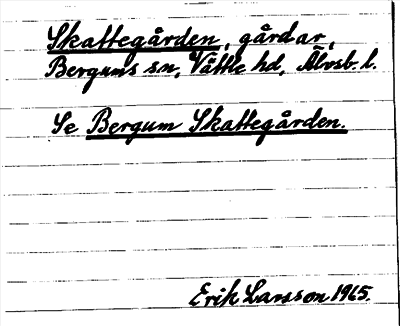 Skattegården, gårdar,
Bergums sn, Vättle hd, Älvsb. l.
Se Bergum Skattegården.
Erik Larsson 1965.